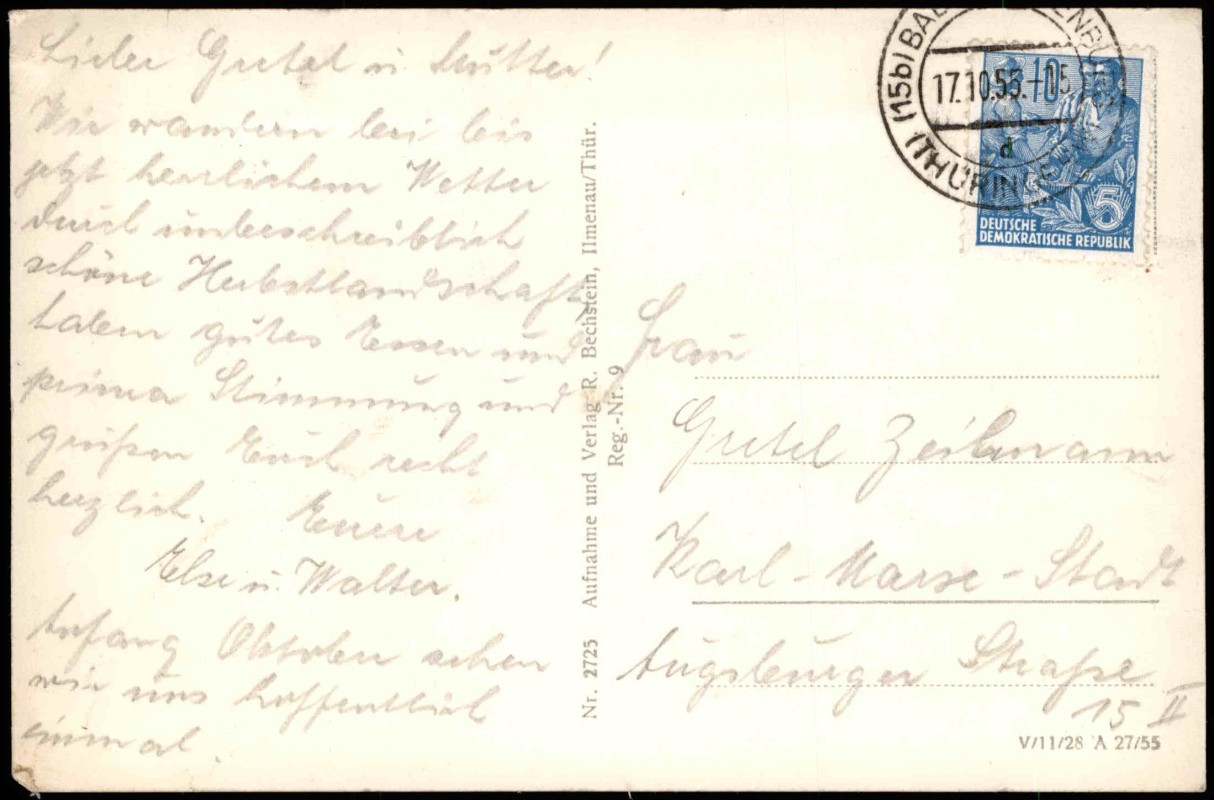 Lieber Gretel u. Mutter!
Wir wandern bei bis
jetzt herrlichem Wetter
durch unbeschreiblich
schöne Herbstlandschaft,
haben gutes Essen und
prima Stimmung und
grüßen Euch recht
herzlich. Euere
Else u. Walter.
Anfang Oktober sehen
wir uns hoffentlich
einmal.
Nr. 2725 Aufnahme und Verlag R. Bechstein, Ilmenau/Thür.
Reg.-Nr. 9
(15b) BAD
(THÜRINGEN)
17.10.55.-15
d
10
5
DEUTSCHE
DEMOKRATISCHE REPUBLIK
Frau
Gretel Zeilmann
Karl-Marx-Stadt
Augsburger Straße
15 II
V/11/28 A 27/55